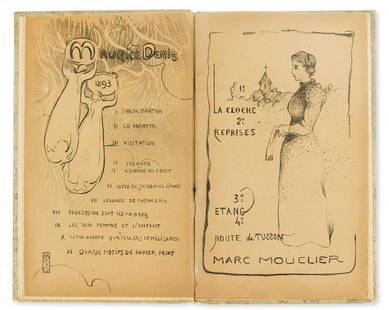 MAURICE DENIS
1893
I SANCTA MARTHA
II LE MARTYR
III VISITATION
IV
V
VI LUTTE DE JACOB AVEC L'ANGE
VII LEGENDE DE CHEVALERIE
VIII PROCESSION SOUS LES ARBRES
IX LES DEUX FEMMES ET L'ENFANT
X LITHOGRAPHIE
XI QUATRE MOTIFS DE PAPIER PEINT
1º
LA CLOCHE
2º
REPRISES
3º
ETANG
4º
ROUTE DE TUSSON
MARC MOUCLIER